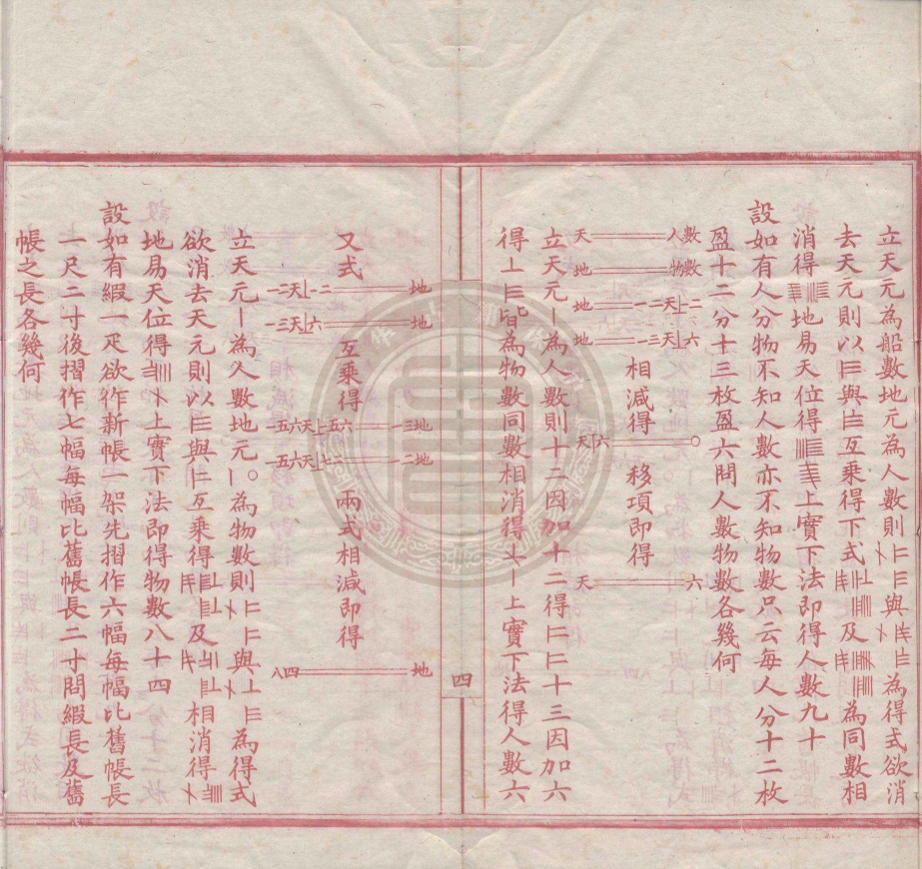 立天元為船數地元為人數則與為得式欲消
去天元則以與互乘得下式及為同數相
消得地易天位得上實下法即得人數九十
設如有人分物不知人數亦不知物數只云每人分十二枚
盈十二分十三枚盈六問人數物數各幾何
數人 天
數物 地
二一⊥天二一 地
六⊥天三一 地
相減得
〇 六⊥天
移項即得
六 天
立天元〡為人數則十二因加十二得十三因加六
得皆為物數同數相消得上實下法得人數六
四
又式
地 二一⊥天二一
地 六⊥天三一
互乘得
地三一 六五一⊥天六五一
地二一 二七⊥天六五一
兩式相減即得
地 四八
立天元〡為人數地元〡〇為物數則與為得式
欲消去天元則以與互乘得及相消得
地易天位得上實下法即得物數八十四
設如有緞一疋欲作新帳一架先摺作六幅每幅比舊帳長
一尺二寸後摺作七幅每幅比舊帳長二寸問緞長及舊
帳之長各幾何